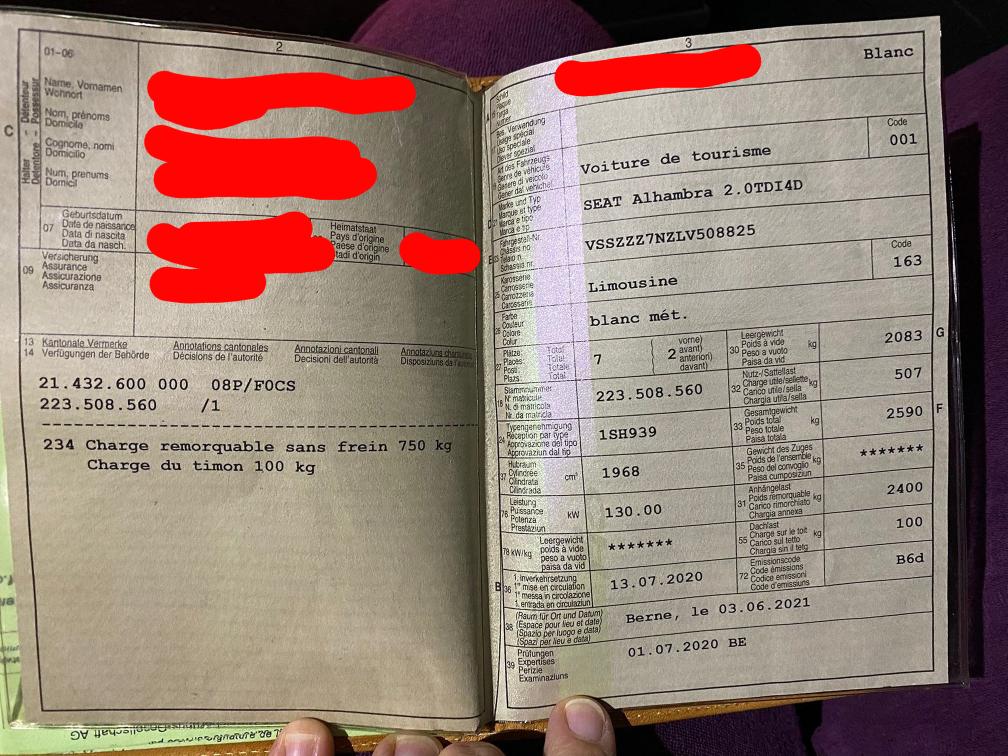 2
01-06
C
Halter - Détenteur
Detentore - Possessur
Name, Vornamen
Wohnort
Nom, prénoms
Domicile
Cognome, nomi
Domicilio
Num, prenums
Domicil
07
Geburtsdatum
Date de naissance
Data di nascita
Data da nasch.
Heimatstaat
Pays d'origine
Paese d'origine
Stadi d'origin
09
Versicherung
Assurance
Assicurazione
Assicuranza
13 Kantonale Vermerke Annotations cantonales Annotazioni cantonali Annotaziuns
14 Verfügungen der Behörde Décisions de l'autorité Decisioni dell'autorità Disposiziuns da
21.432.600 000 08P/F0CS
223.508.560 /1
234 Charge remorquable sans frein 750 kg
Charge du timon 100 kg
3
A
Schild
Plaque
Targa
Blanc
Bes. Verwendung
Usage spécial
Uso speciale
Diever spezial
Art des Fahrzeugs
Genre de véhicule
Genere di veicolo
Gener dal vehichel
Voiture de tourisme
Code
001
D
Marke und Typ
Marque et type
Marca e tipo
Marca e tip
SEAT Alhambra 2.0TDI4D
E
Fahrgestell-Nr.
Châssis no
Telaio n.
Schassis nr.
VSSZZZ7NZLV508825
Karosserie
Carrosserie
Carrozzeria
Carossaria
Limousine
Code
163
Farbe
Couleur
Colore
Colur
blanc mét.
27
Plätze: Total
Places: Total
Posti: Totale
Plazs: Total
7
2
vorne)
avant)
anteriori)
davant)
30
Leergewicht
Poids à vide
Peso a vuoto
Paisa da vid
kg
2083
G
18
Stammnummer
N° matricule
N. di matricola
Nr. da matricla
223.508.560
32
Nutz-/Sattellast
Charge utile/sellette
Carico utile/sella
Chargia utila/sella
kg
507
24
Typengenehmigung
Réception par type
Approvazione del tipo
Approvaziun dal tip
1SH939
33
Gesamtgewicht
Poids total
Peso totale
Paisa totala
kg
2590
F
37
Hubraum
Cylindrée
Cilindrata
Cilindrada
cm³
1968
35
Gewicht des Zuges
Poids de l'ensemble
Peso del convoglio
Paisa cumposiziun
kg
*******
76
Leistung
Puissance
Potenza
Prestaziun
kW
130.00
31
Anhängelast
Poids remorquable
Carico rimorchiato
Chargia annexa
kg
2400
78 kW/kg
Leergewicht
poids à vide
peso a vuoto
paisa da vid
*******
55
Dachlast
Charge sur le toit
Carico sul tetto
Chargia sin il tetg
kg
100
B
36
1. Inverkehrsetzung
1re mise en circulation
1a messa in circolazione
1. entrada en circulaziun
13.07.2020
72
Emissionscode
Code émissions
Codice emissioni
Code d'emissiuns
B6d
38
(Raum für Ort und Datum)
(Espace pour lieu et date)
(Spazio per luogo e data)
(Spazi per lieu e data)
Berne, le 03.06.2021
39
Prüfungen
Expertises
Perizie
Examinaziuns
01.07.2020 BE